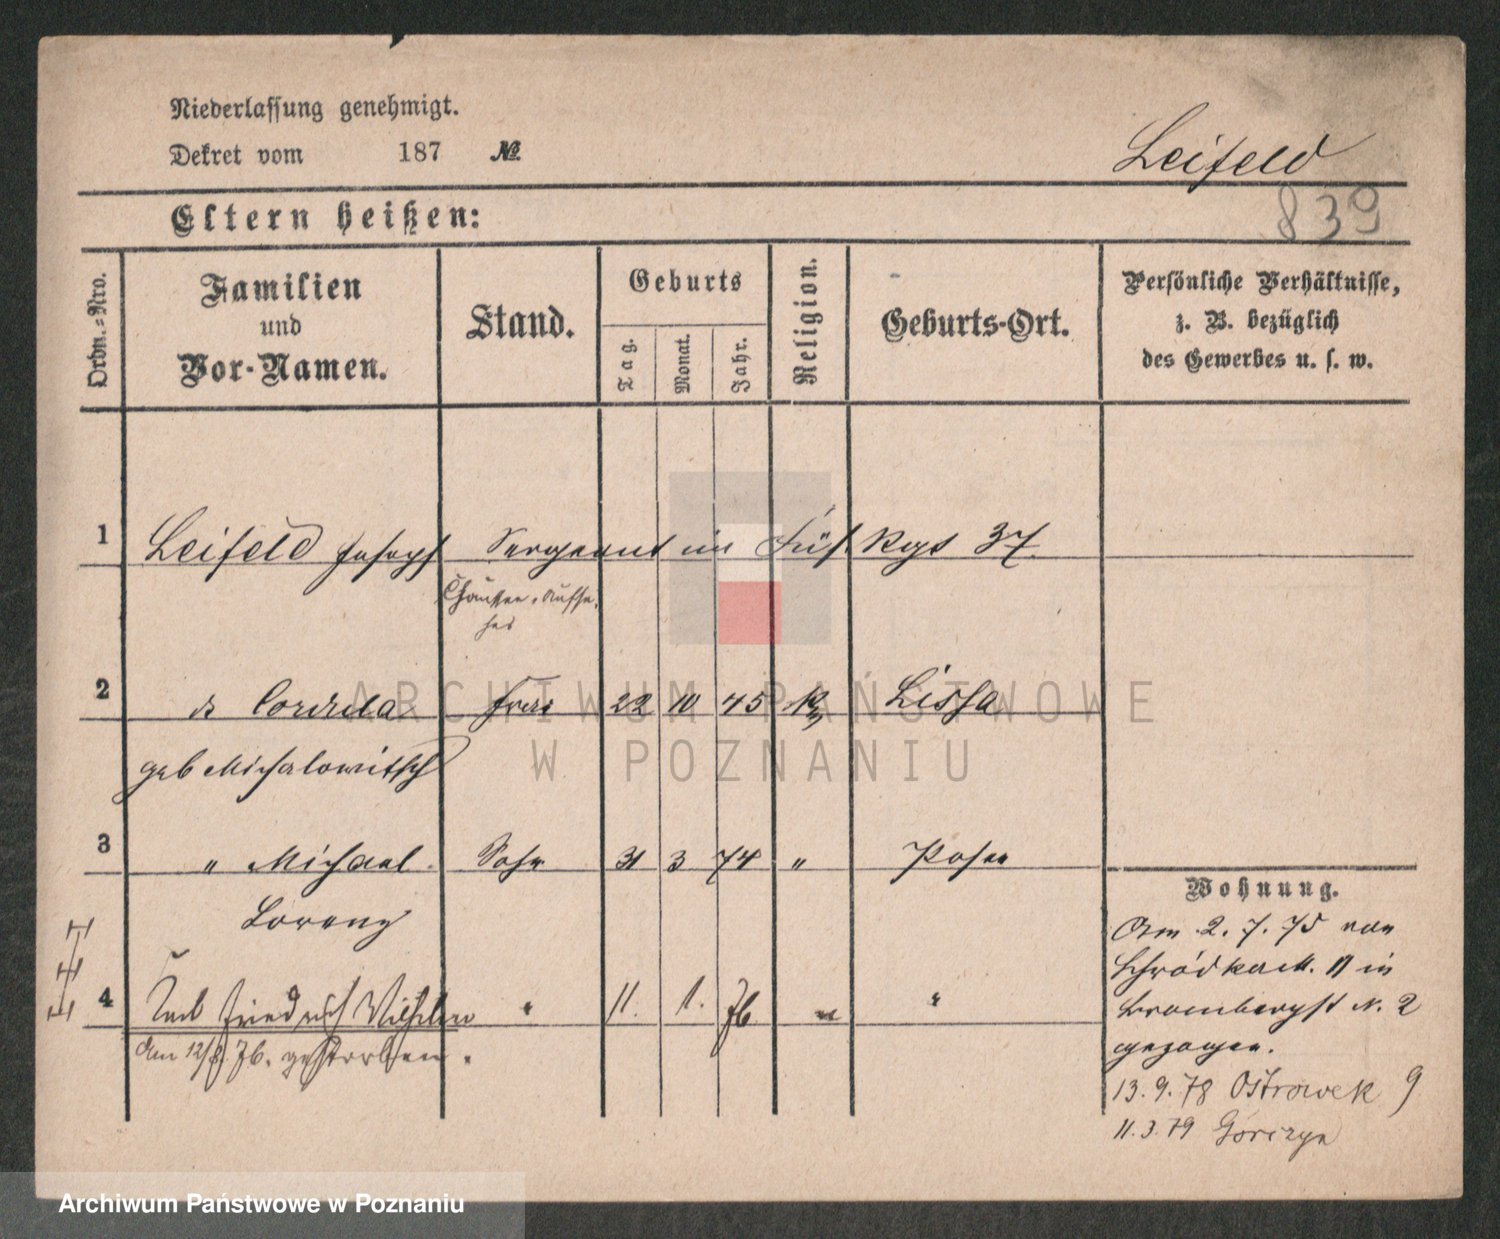 Niederlassung genehmigt.
Dekret vom 187 №
Leifeld
Eltern heißen:
839
Ordn.-Nro.
Familien
und
Vor-Namen.
Stand.
Geburts
Tag.
Monat.
Jahr.
Religion.
Geburts-Ort.
Persönliche Verhältnisse,
z. B. bezüglich
des Gewerbes u. s. w.
1 Leifeld Joseph Sergeant im Füs Regt 37.
Chaussee-Aufse-
her
2 Cordula Frau 22 10 45 Lissa
geb Michalowitsch
3 " Michael Sohn 31 3 74 " Posen
Lorenz
Wohnung.
Am 2. 7. 75 von
in
Brombergst N. 2
gezogen.
4 Friedrich Wilhelm " 11. 1. 76 " "
am 12/8. 76. gestorben.
13.9.78 Ostrowek 9
11.3.79 Gorczyn
ARCHIWUM PAŃSTWOWE
W POZNANIU
Archiwum Państwowe w Poznaniu